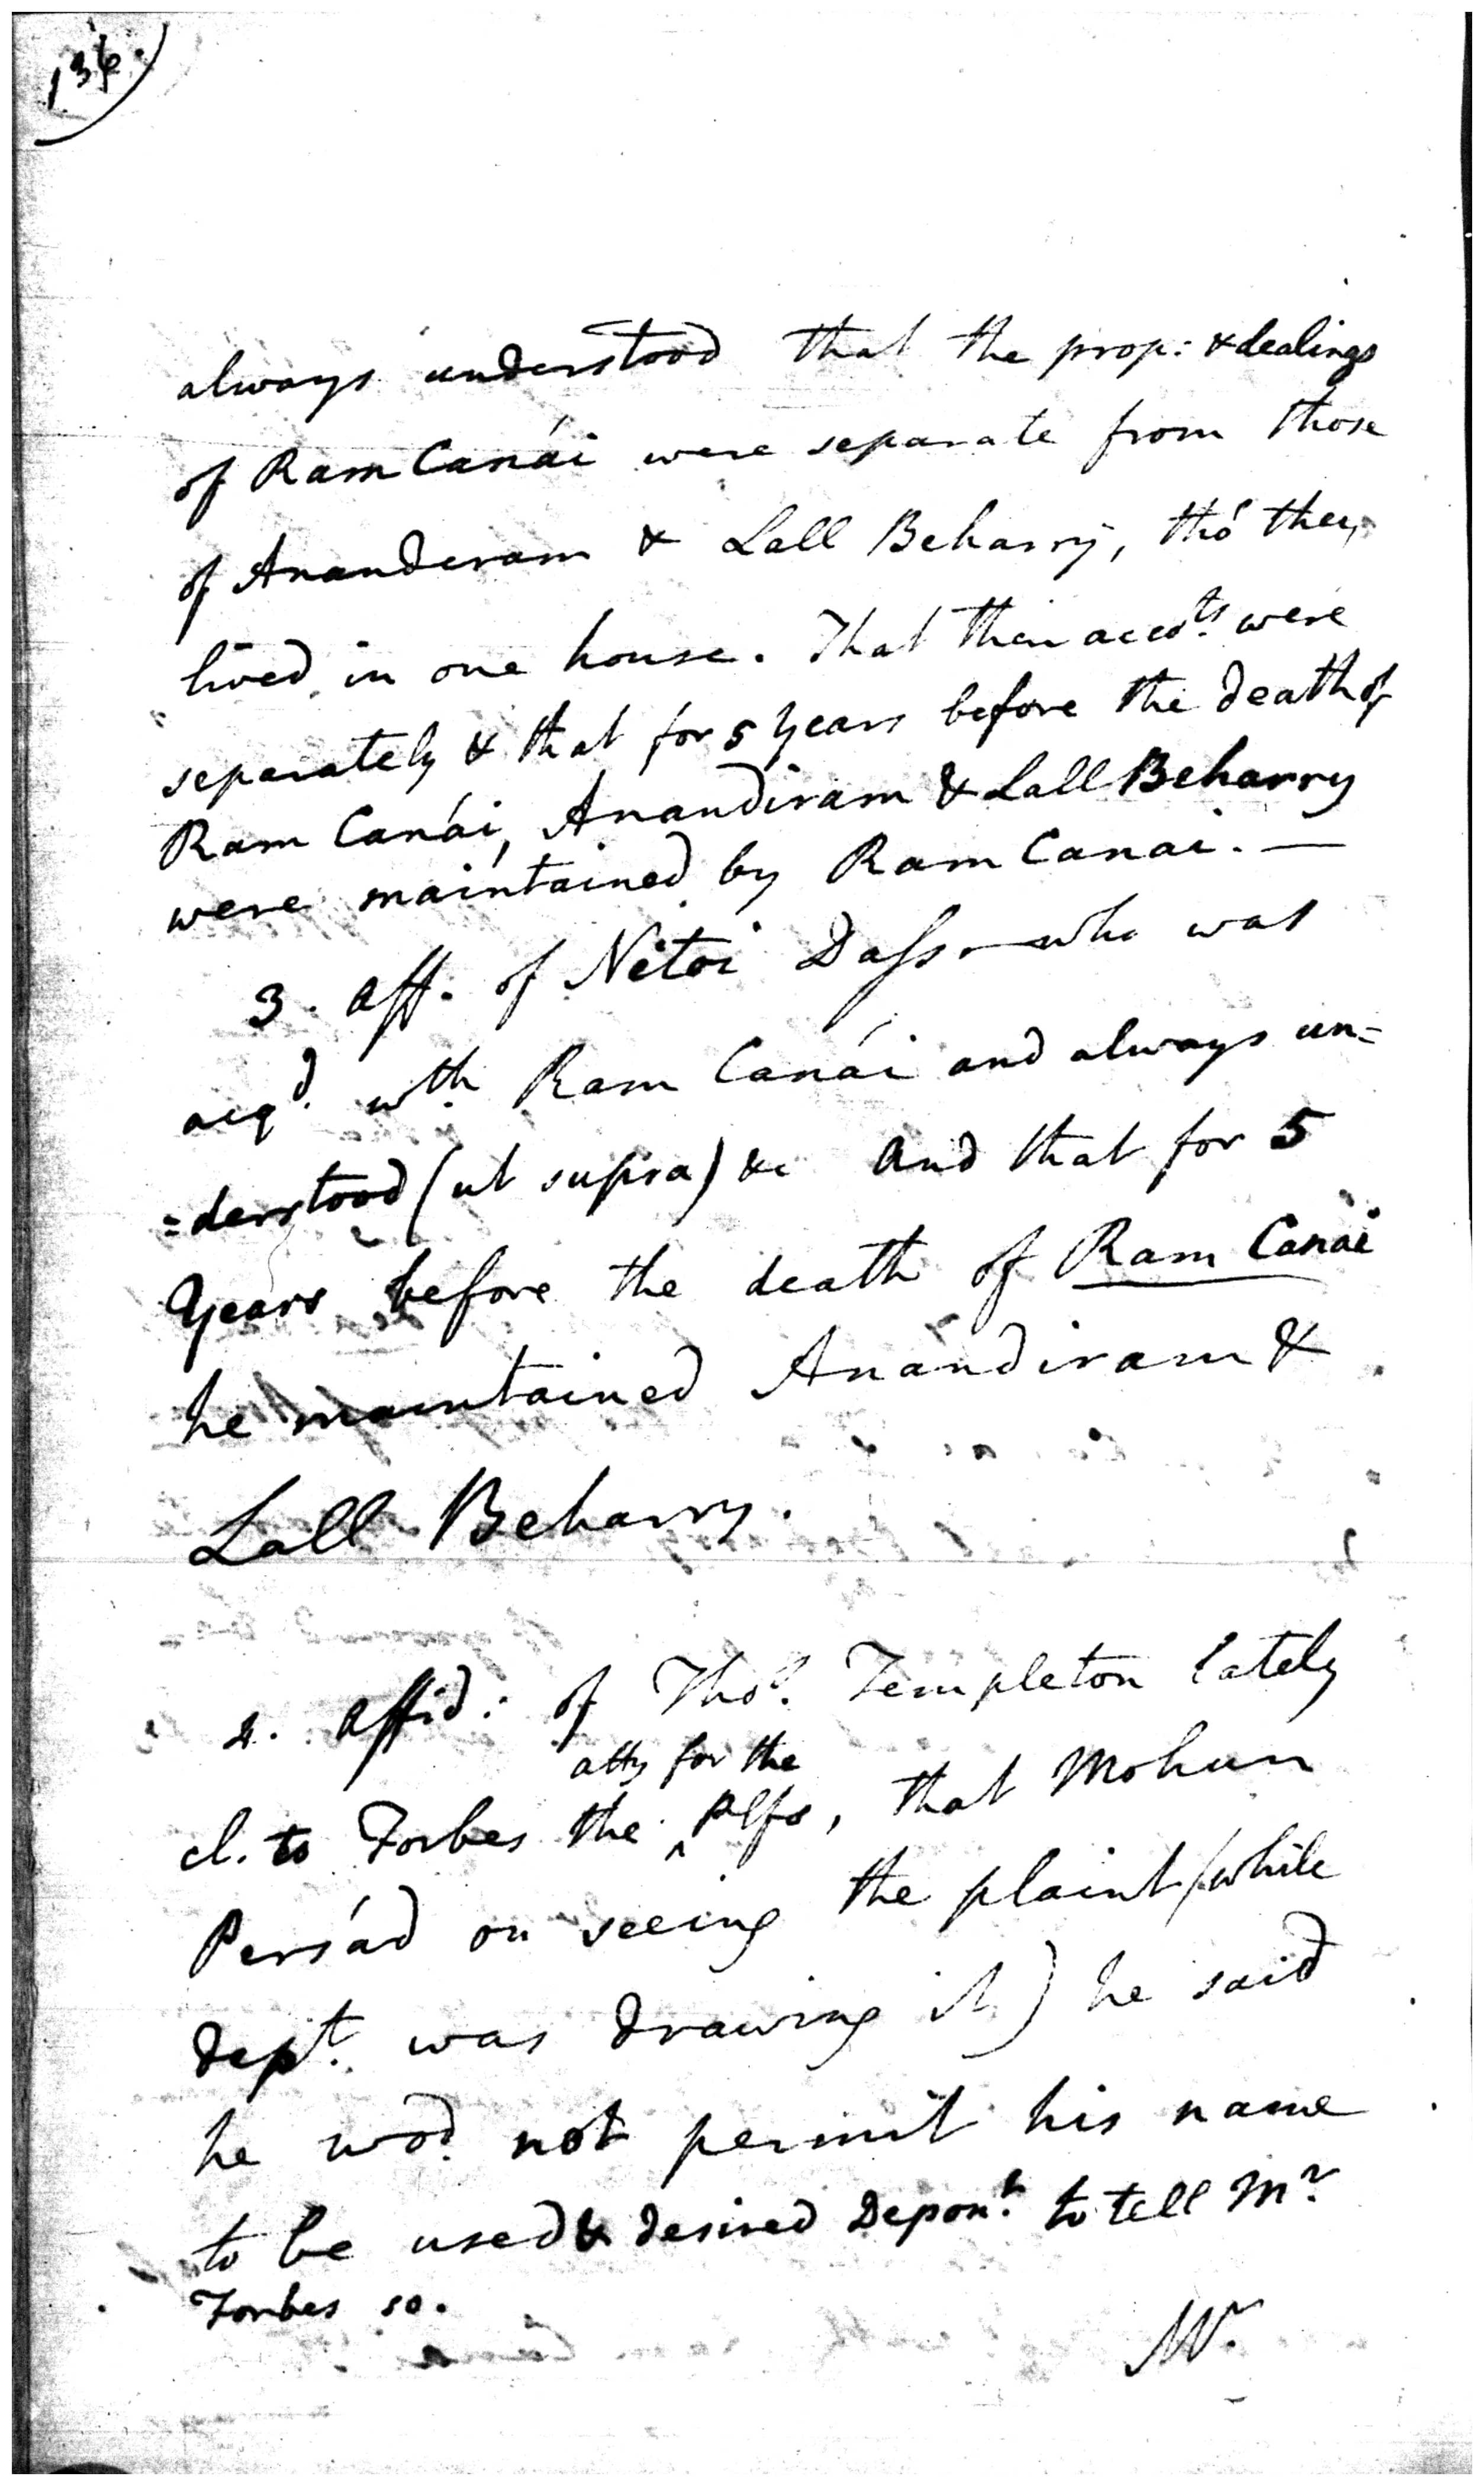 136.
always understood that the prop: & dealings
of Ram Canái were separate from those
of Ananderam & Lall Beharry, thó they
lived in one house. That their accots. were
separately & that for 5 years before the death of
Ram Canái, Anandiram & Lall Beharry
were maintained by Ram Canai. —
3. Aff. of Nitoi Dass — who was
acqd. wth. Ram Canái and always un=
=derstood (ut supra) &c and that for 5
Years before the death of Ram Canái
he maintained Anandiram &
Lall Beharry.
4. Affid: of Thos. Templeton lately
atty for the
cl. to Forbes the ^ Plfs, that Mohun
Persád on seeing the plaint (while
Dept. was drawing it) he said
he wod. not permit his name
to be used & desired Depont. to tell Mr.
Forbes so.
Mr.